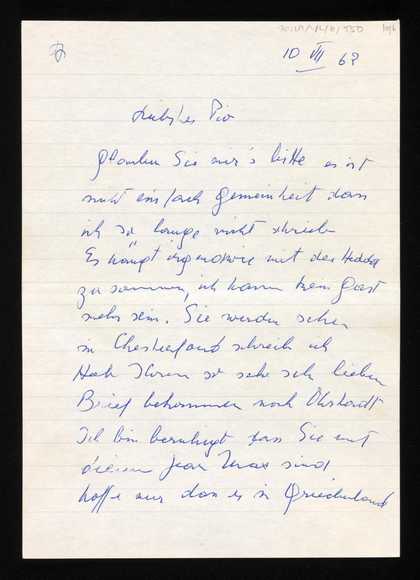 10 VII 68
Liebstes Pio
Glauben Sie mir's bitte es ist
nicht einfach Gemeinheit dass
ich so lange nicht schrieb
Es hängt irgendwie mit der
zusammen, ich kann kein Gast
mehr sein. Sie werden sehen
in schreib ich
Hab Ihren so sehr sehr lieben
Brief bekommen noch
Ich bin beruhigt dass Sie mit
diesem Jean sind
hoffe nur dass es in Griechenland